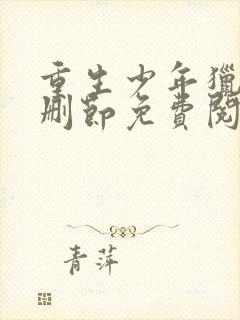 重生少年獵
刪節免費閱
青萍